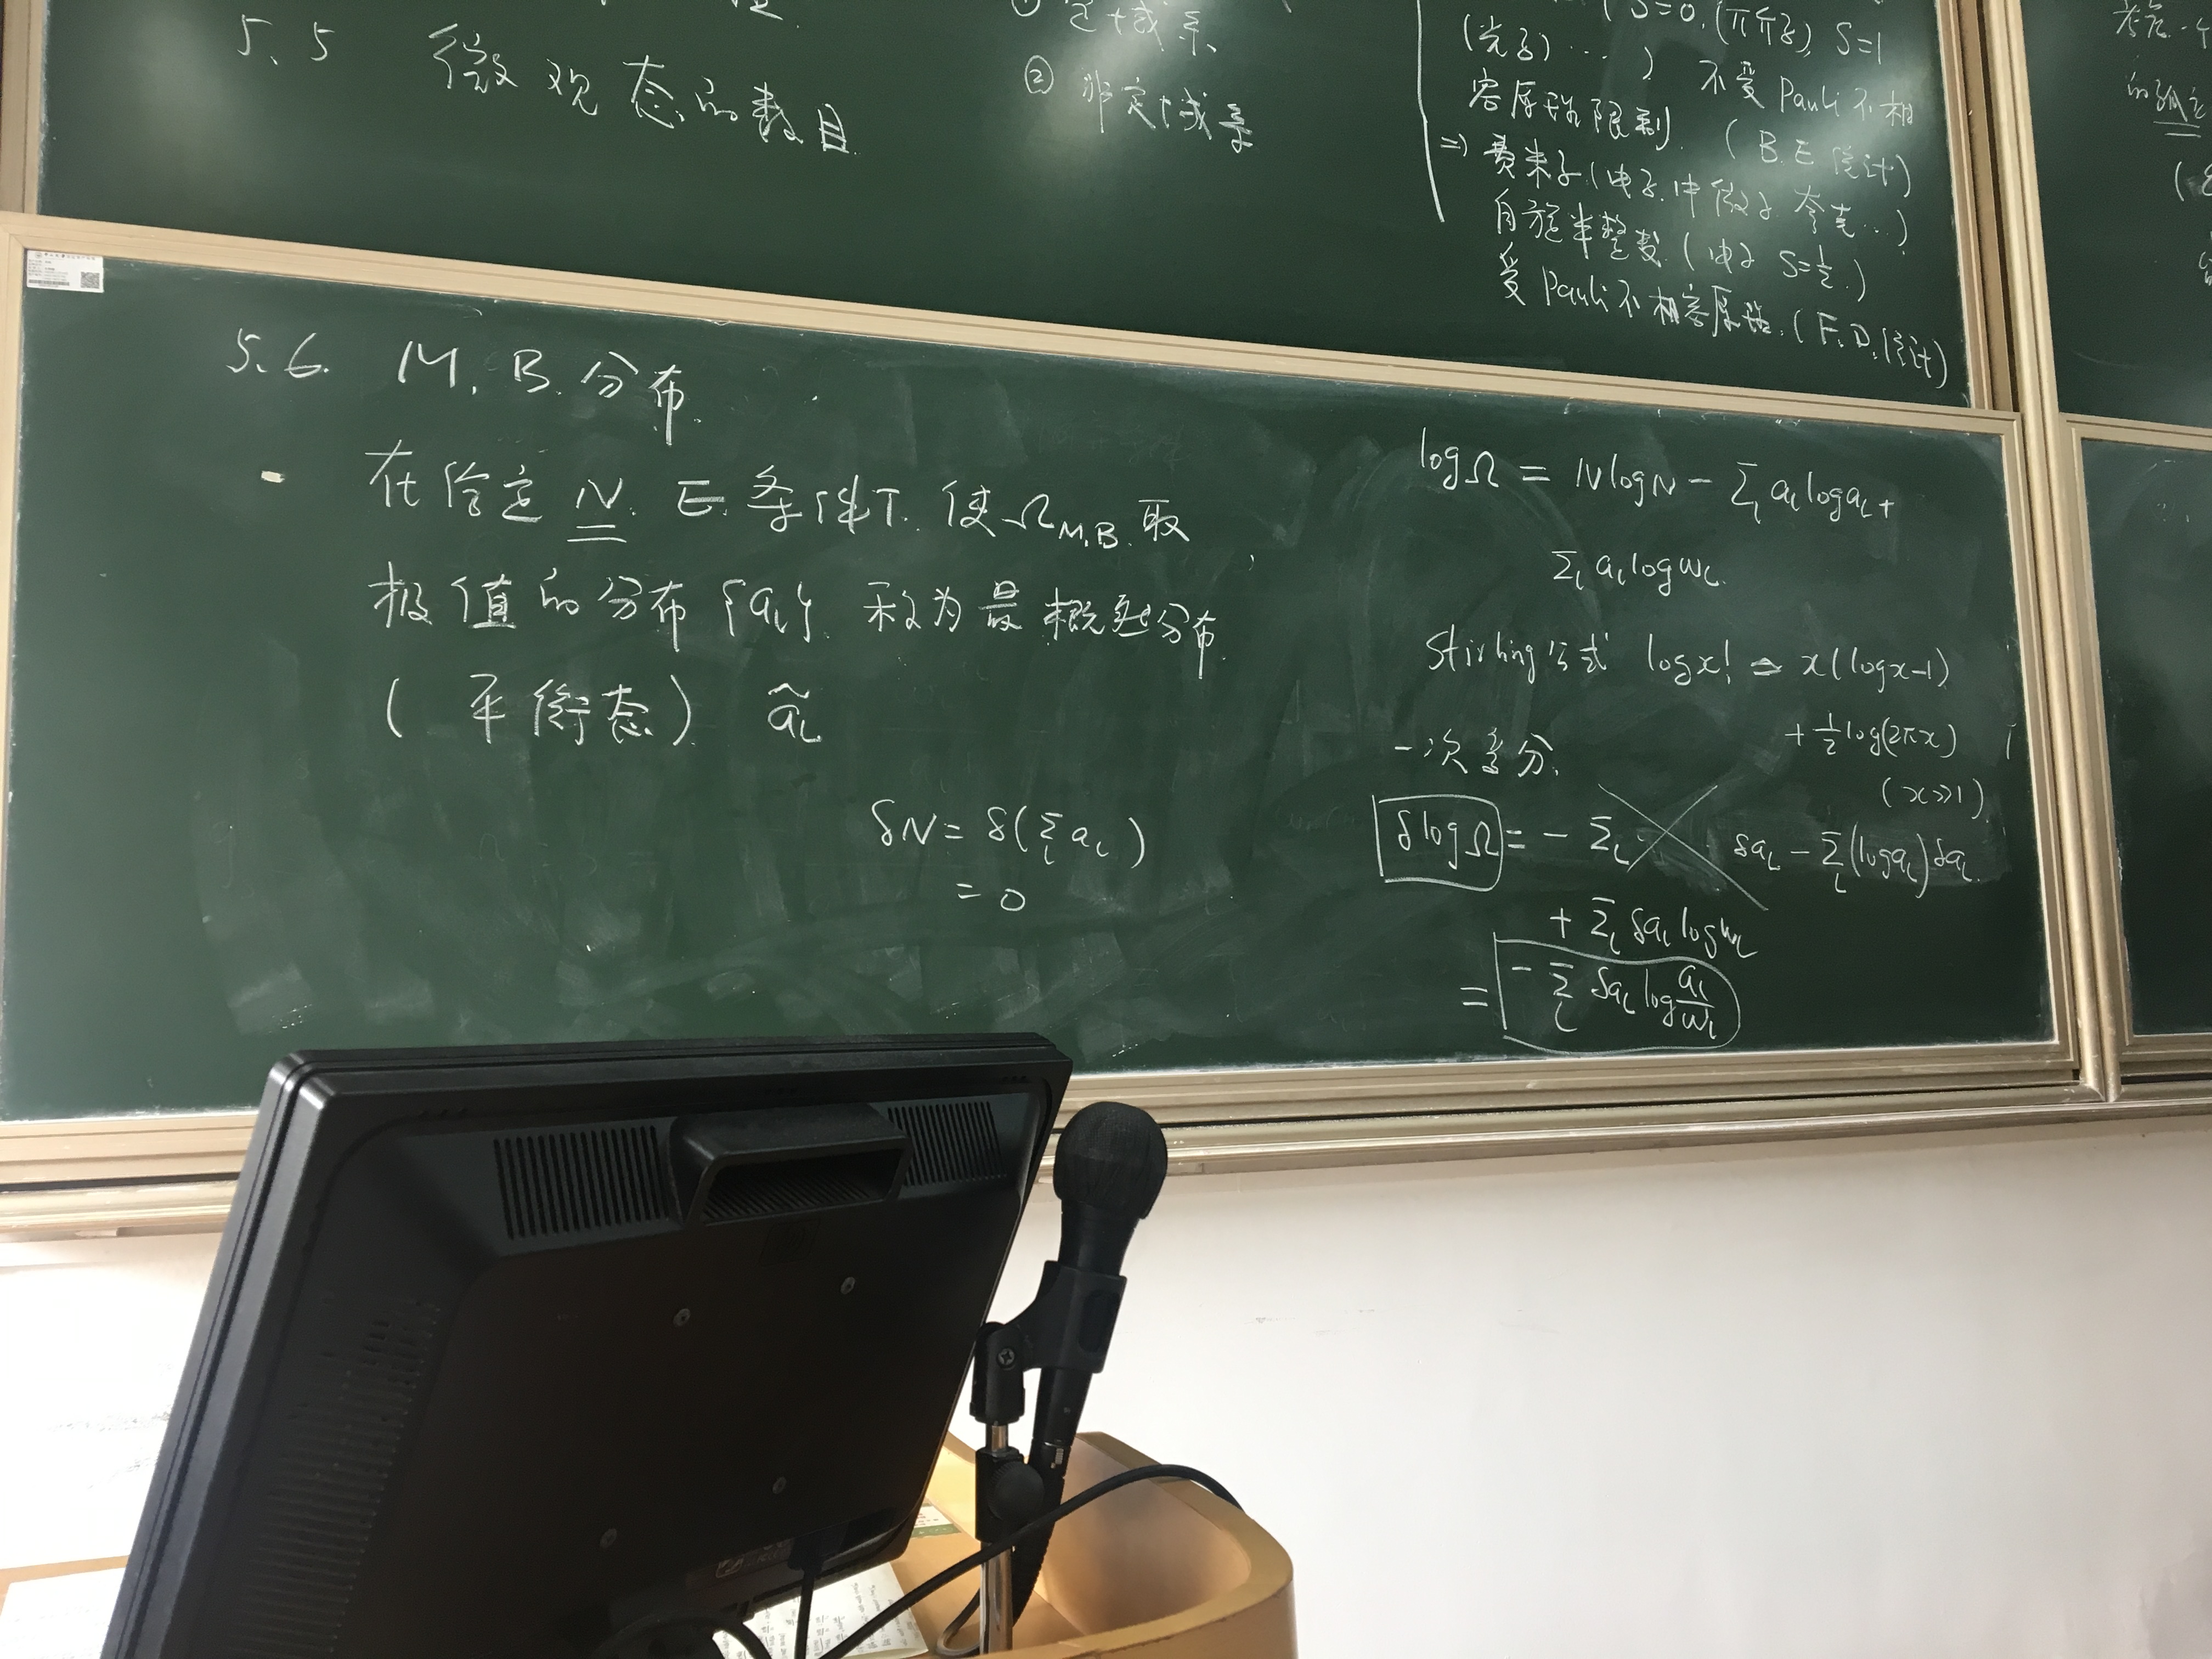 5.5 微观态的数目
① 定域系
② 非定域系
S=0, (π介子), S=1
(光子) … ) 不受 Pauli 不相
容原理限制. (B.E 统计)
⇒ 费米子(电子.中微子.夸克…)
自旋半整数 (电子 S=1/2.)
受 Pauli 不相容原理. (F.D.统计)
5.6. M.B.分布.
在给定 N. E. 条件下. 使 Ω_{M.B.} 取
极值的分布 {a_l} 称为最概然分布
(平衡态) ã_l
δN = δ(Σ_l a_l)
= 0
logΩ = NlogN - Σ_l a_l log a_l +
Σ_l a_l log ω_l.
Stirling公式 log x! ≃ x(log x-1)
+ 1/2 log(2πx)
(x≫1)
一次变分.
δlogΩ = - Σ_l δa_l - Σ_l (log a_l) δa_l.
+ Σ_l δa_l log ω_l
= - Σ_l δa_l log a_l/ω_l